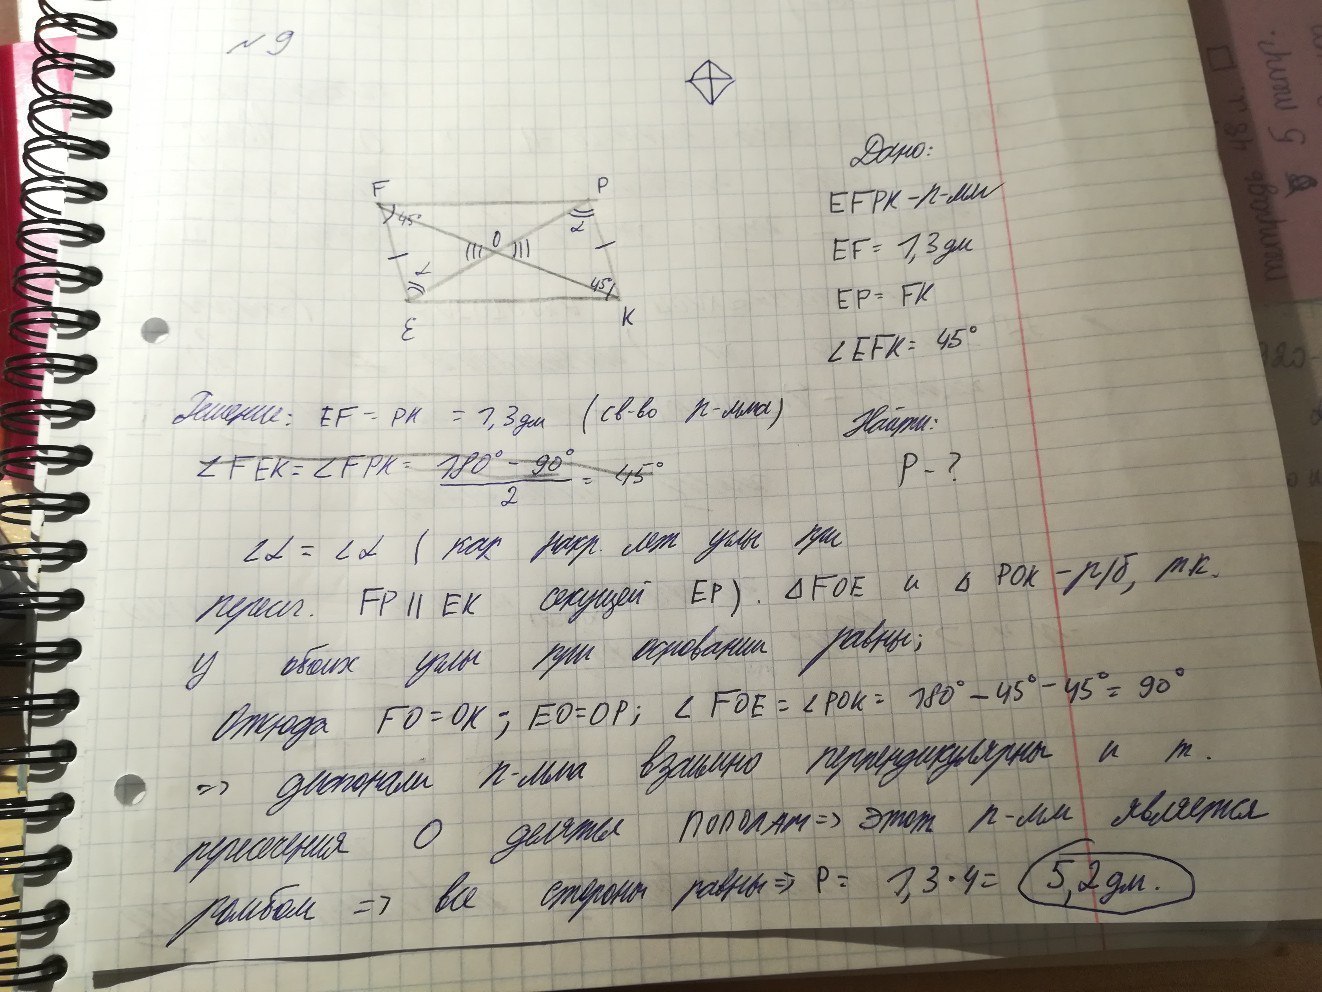 №9
F
P
45°
O
α
α
45°
E
K
Дано:
EFPK - п-мм
EF = 1,3 дм
EP = FK
∠EFK = 45°
Найти:
P - ?
Решение: EF = PK = 1,3 дм (св-во п-мма)
∠FEK = ∠FPK = (180° - 90°)/2 = 45°
∠α = ∠α (как накр. леж углы при
пересеч. FP || EK секущей EP). △FOE и △POK - р/б, т.к.
у обоих углы при основании равны;
Отсюда FO = OK; EO = OP; ∠FOE = ∠POK = 180° - 45° - 45° = 90°
=> диагонали п-мма взаимно перпендикулярны и т.
пересечения O делятся пополам => этот п-мм является
ромбом => все стороны равны => P = 1,3 · 4 = 5,2 дм.